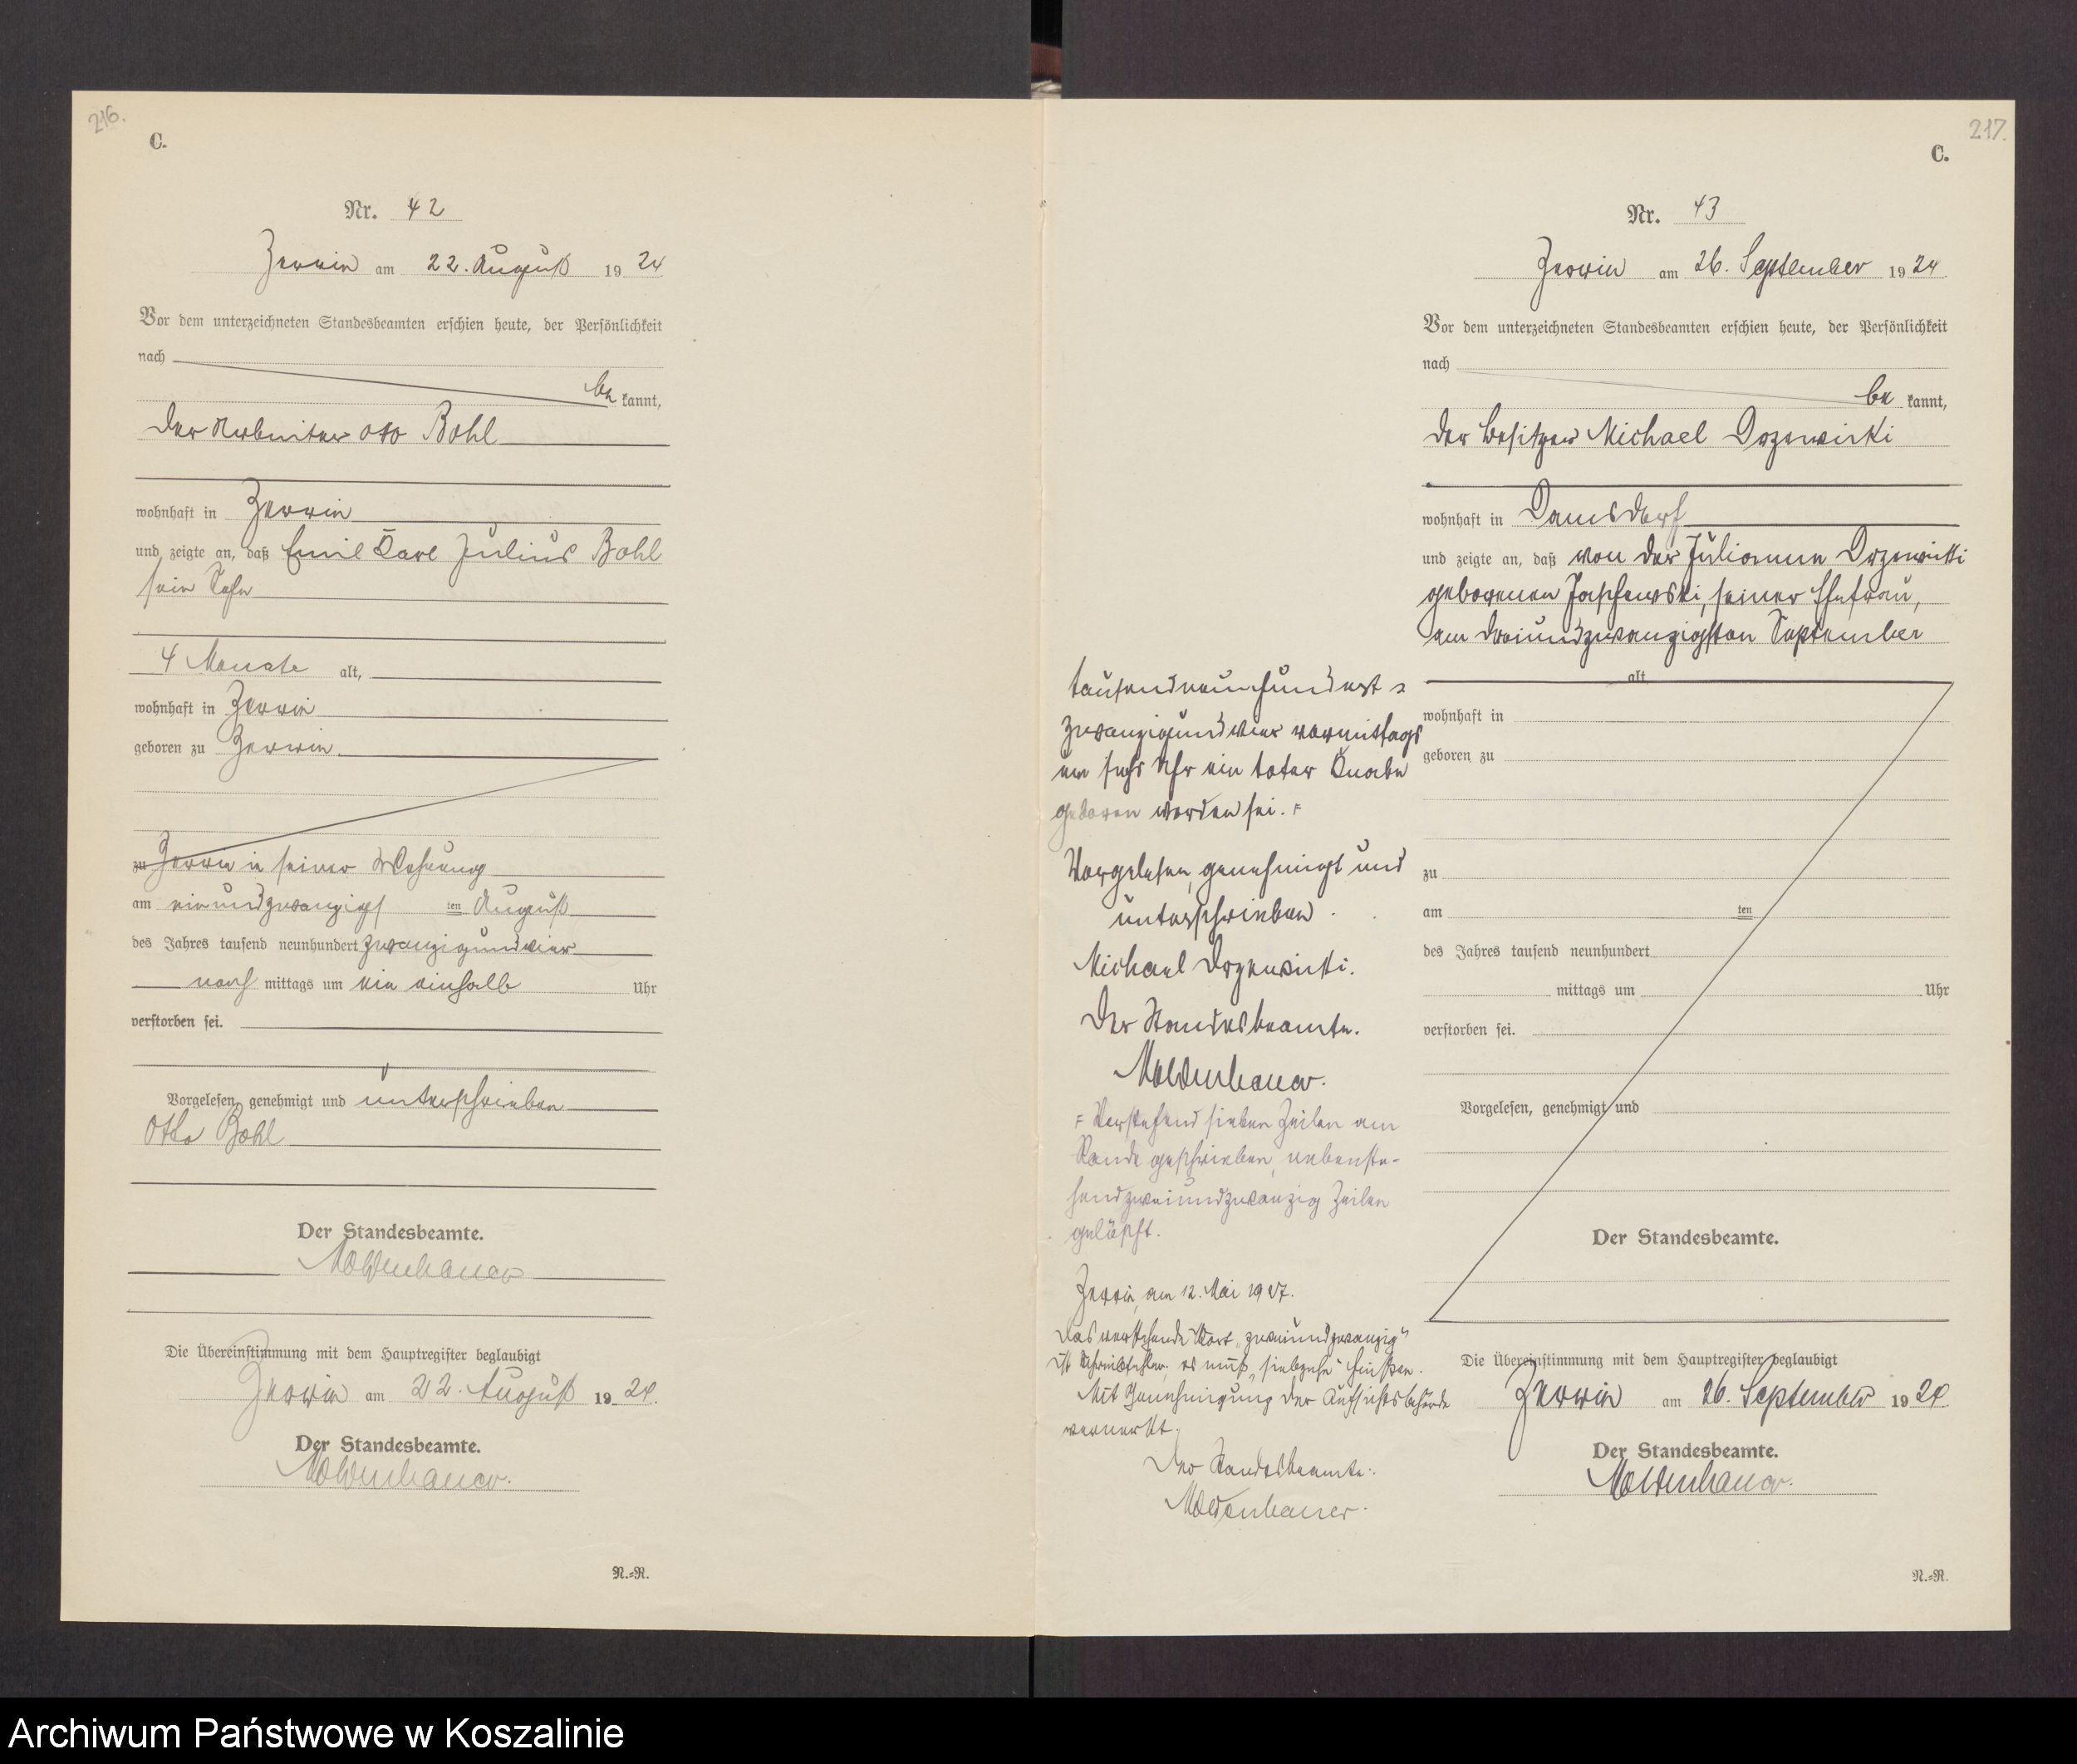 216.
C.
Nr. 42
Zerrin am 22. August 1924
Vor dem unterzeichneten Standesbeamten erschien heute, der Persönlichkeit
nach
be kannt,
der Arbeiter Otto Bohl
wohnhaft in Zerrin
und zeigte an, daß Emil Karl Julius Bohl
sein Sohn
4 Monate alt,
wohnhaft in Zerrin
geboren zu Zerrin
zu Zerrin in seiner Wohnung
am einundzwanzigsten August
des Jahres tausend neunhundert zwanzigundvier
nach mittags um ein einhalb Uhr
verstorben sei.
Vorgelesen, genehmigt und unterschrieben
Otto Bohl
Der Standesbeamte.
Moldenhauer
Die Übereinstimmung mit dem Hauptregister beglaubigt
Zerrin am 22. August 1924.
Der Standesbeamte.
Moldenhauer.
N.=R.
217.
C.
Nr. 43
Zerrin am 26. September 1924
Vor dem unterzeichneten Standesbeamten erschien heute, der Persönlichkeit
nach
be kannt,
der Besitzer Michael
wohnhaft in Damsdorf
und zeigte an, daß von der
geborenen seiner Ehefrau,
am dreiundzwanzigsten September
alt
tausendneunhundert=
zwanzigundvier vormittags
um sechs Uhr ein toter Knabe
geboren worden sei.
Vorgelesen, genehmigt und
unterschrieben.
Michael
Der Standesbeamte.
Moldenhauer.
Vorstehend sieben Zeilen am
Rande geschrieben, nebenste-
hend zweiundzwanzig Zeilen
gelöscht.
Zerrin, am 12. Mai 1927.
Das vorstehende Wort „zweiundzwanzig"
ist Schreibfehler, es muß „siebzehn" heißen.
Mit Genehmigung der Aufsichtsbehörde
vermerkt.
Der Standesbeamte.
Moldenhauer.
wohnhaft in
geboren zu
zu
am ten
des Jahres tausend neunhundert
mittags um Uhr
verstorben sei.
Vorgelesen, genehmigt und
Der Standesbeamte.
Die Übereinstimmung mit dem Hauptregister beglaubigt
Zerrin am 26. September 1924.
Der Standesbeamte.
Moldenhauer.
N.=R.
Archiwum Państwowe w Koszalinie